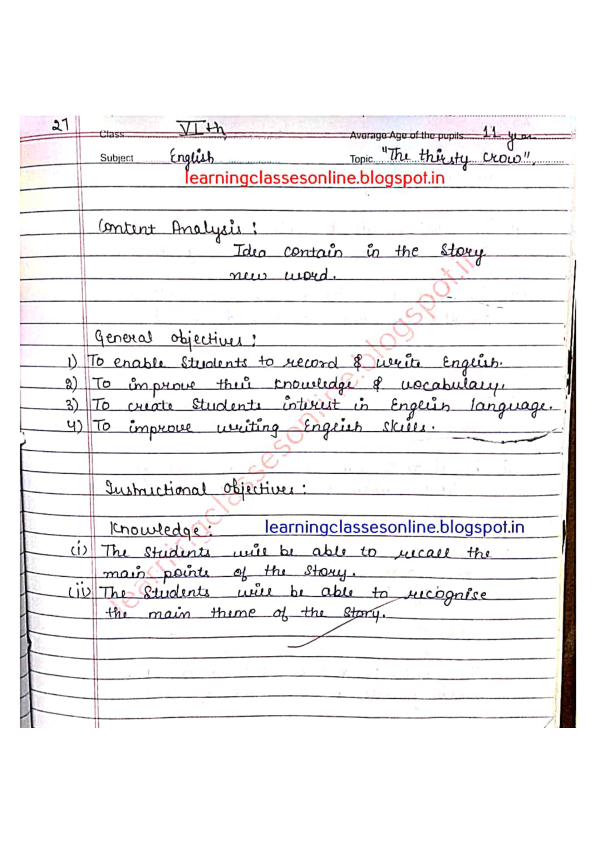 27
Class VIth Average Age of the pupils 11 year
Subject English Topic "The thirsty crow".
learningclassesonline.blogspot.in
Content Analysis :
Idea contain in the Story
new word.
General objectives :
1) To enable Students to record & write English.
2) To improve their knowledge & vocabulary.
3) To create Students interist in English language.
4) To improve writing English skills.
Instructional Objectives :
Knowledge : learningclassesonline.blogspot.in
(i) The Students will be able to recall the
main points of the Story.
(ii) The Students will be able to recognise
the main theme of the Story.
learningclassesonline.blogspot.in